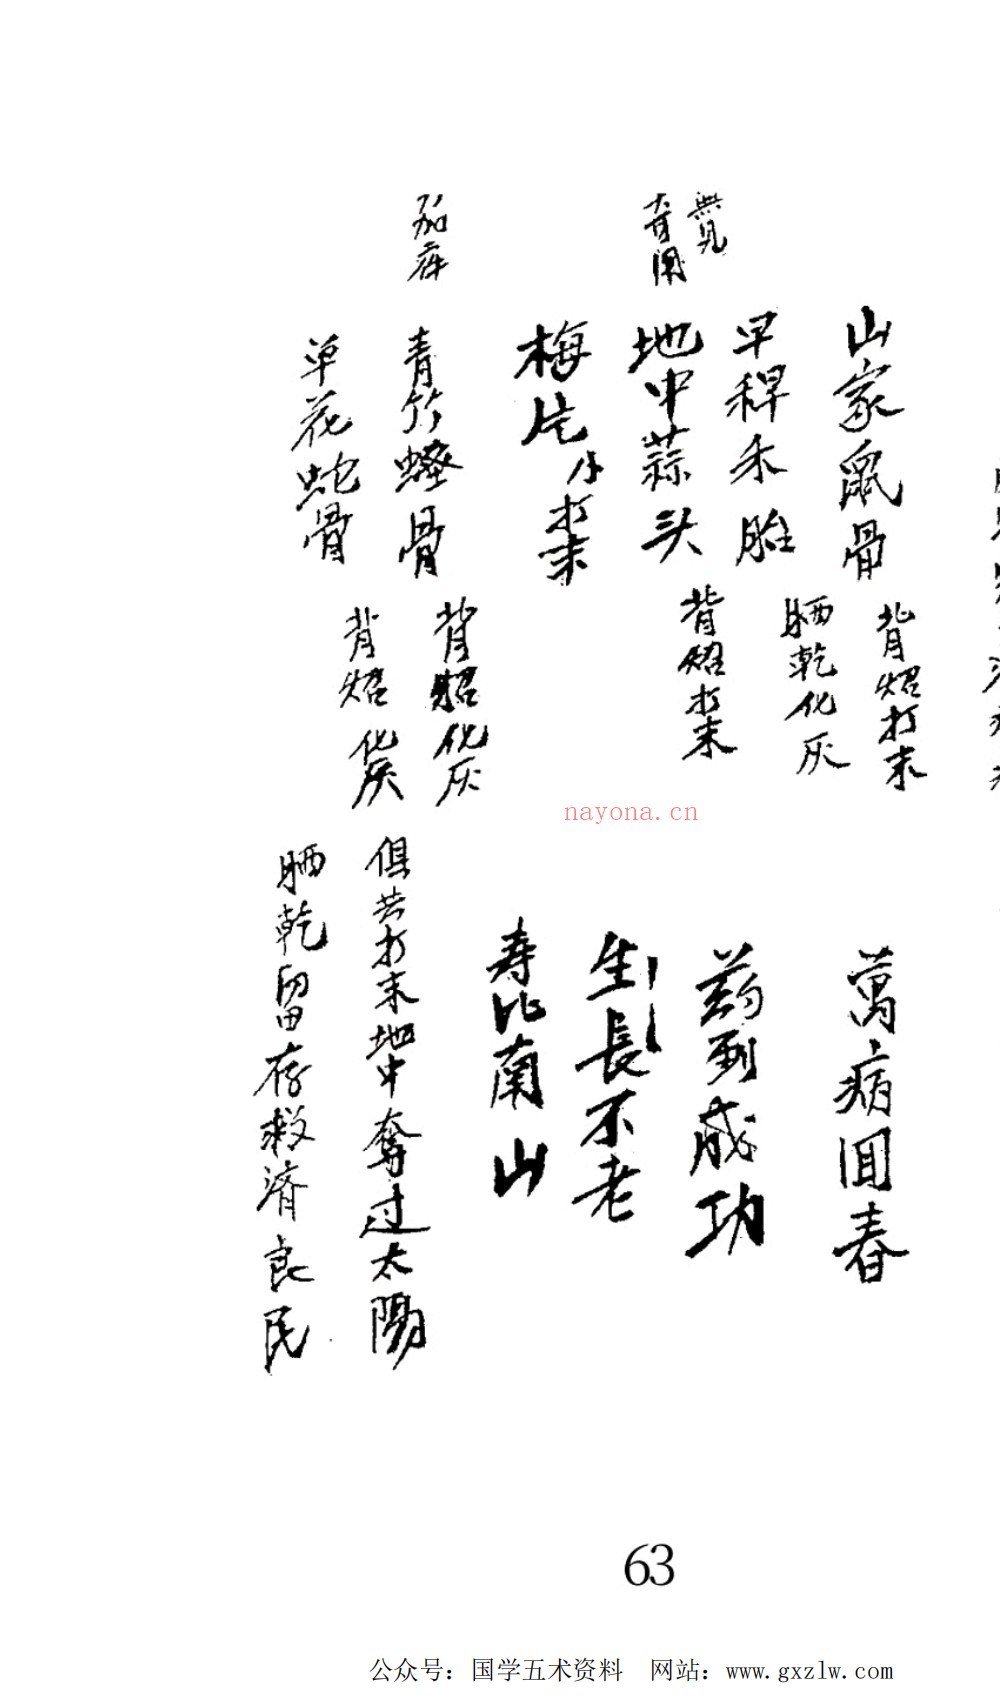 山家鼠骨 背焙打末 萬病囬春
早稈禾胎 晒乾化灰 药到成功
無見
奇
地中蒜头 背焙打末 生長不老
梅片 小打末 寿比南山
加
青竹 骨 背焙化灰 俱共打末地中奪过太陽
单花蛇骨 背焙化灰 晒乾留存救濟良民
nayona.cn
63
公众号：国学五术资料 网站：www.gxzlw.com